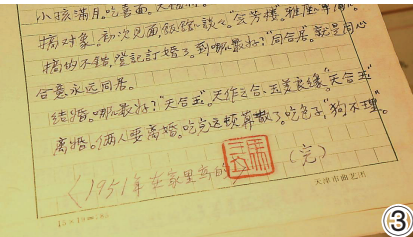 小孩满月。吃喜面。
搞对象。初次见面、饭馆谈心。"会芳楼"。雅座单间。
搞的不错。登记訂婚了。到哪儿最好?"同合居"。就是同心
合意永远同居。
结婚。哪儿最好?"天合玉"。天作之合。玉美良缘。"天合玉"。
离婚。俩人要离婚。吃完这顿算散了。吃包子。"狗不理"。
(完)
(1951年在家里写的
天津市曲艺团
15×19=
③